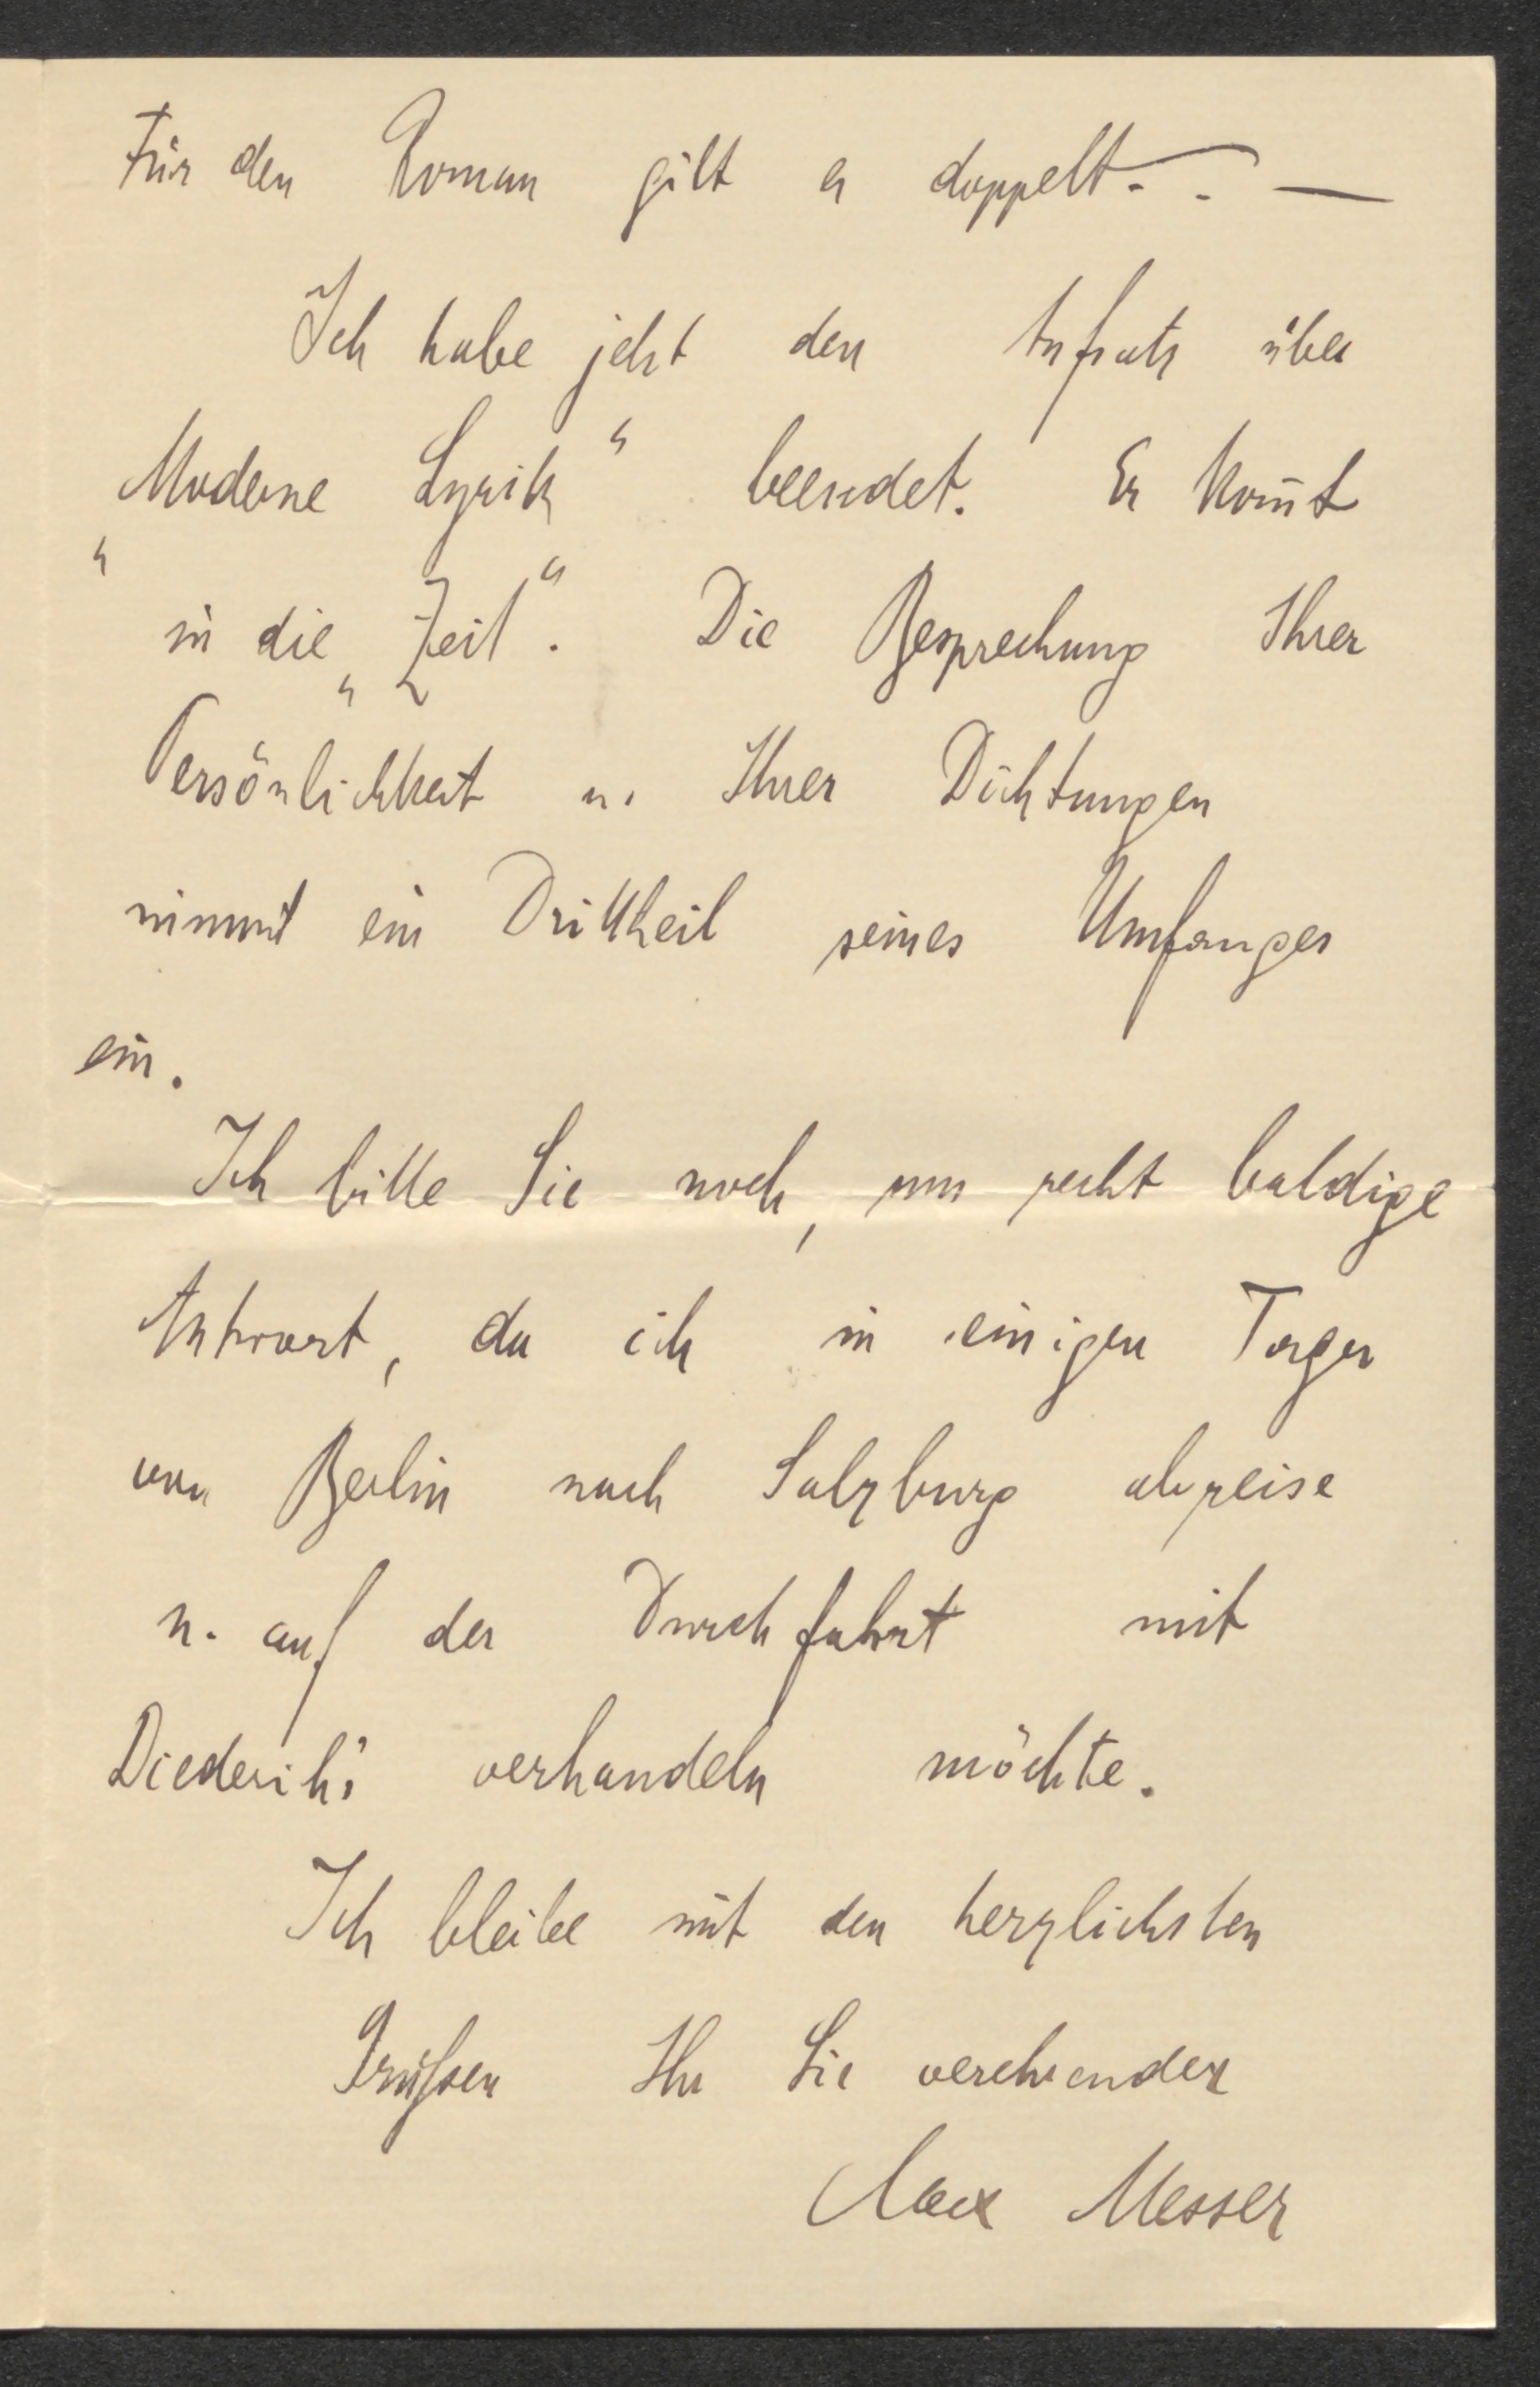 Für den Roman gilt es doppelt. . —
Ich habe jetzt den Aufsatz über
„Moderne Lyrik“ beendet. Er kom̄t
in die „Zeit“. Die Besprechung Ihrer
Persönlichkeit u. Ihrer Dichtungen
nimmt ein Drittheil seines Umfanges
ein.
Ich bitte Sie noch, um recht baldige
Antwort, da ich in einigen Tagen
von Berlin nach Salzburg abreise
u. auf der Durchfahrt mit
Diederichs verhandeln möchte.
Ich bleibe mit den herzlichsten
Grüßen Ihr Sie verehrender
Max Messer